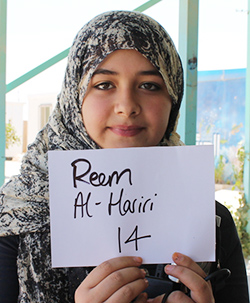 Reem
Al-Hariri
14